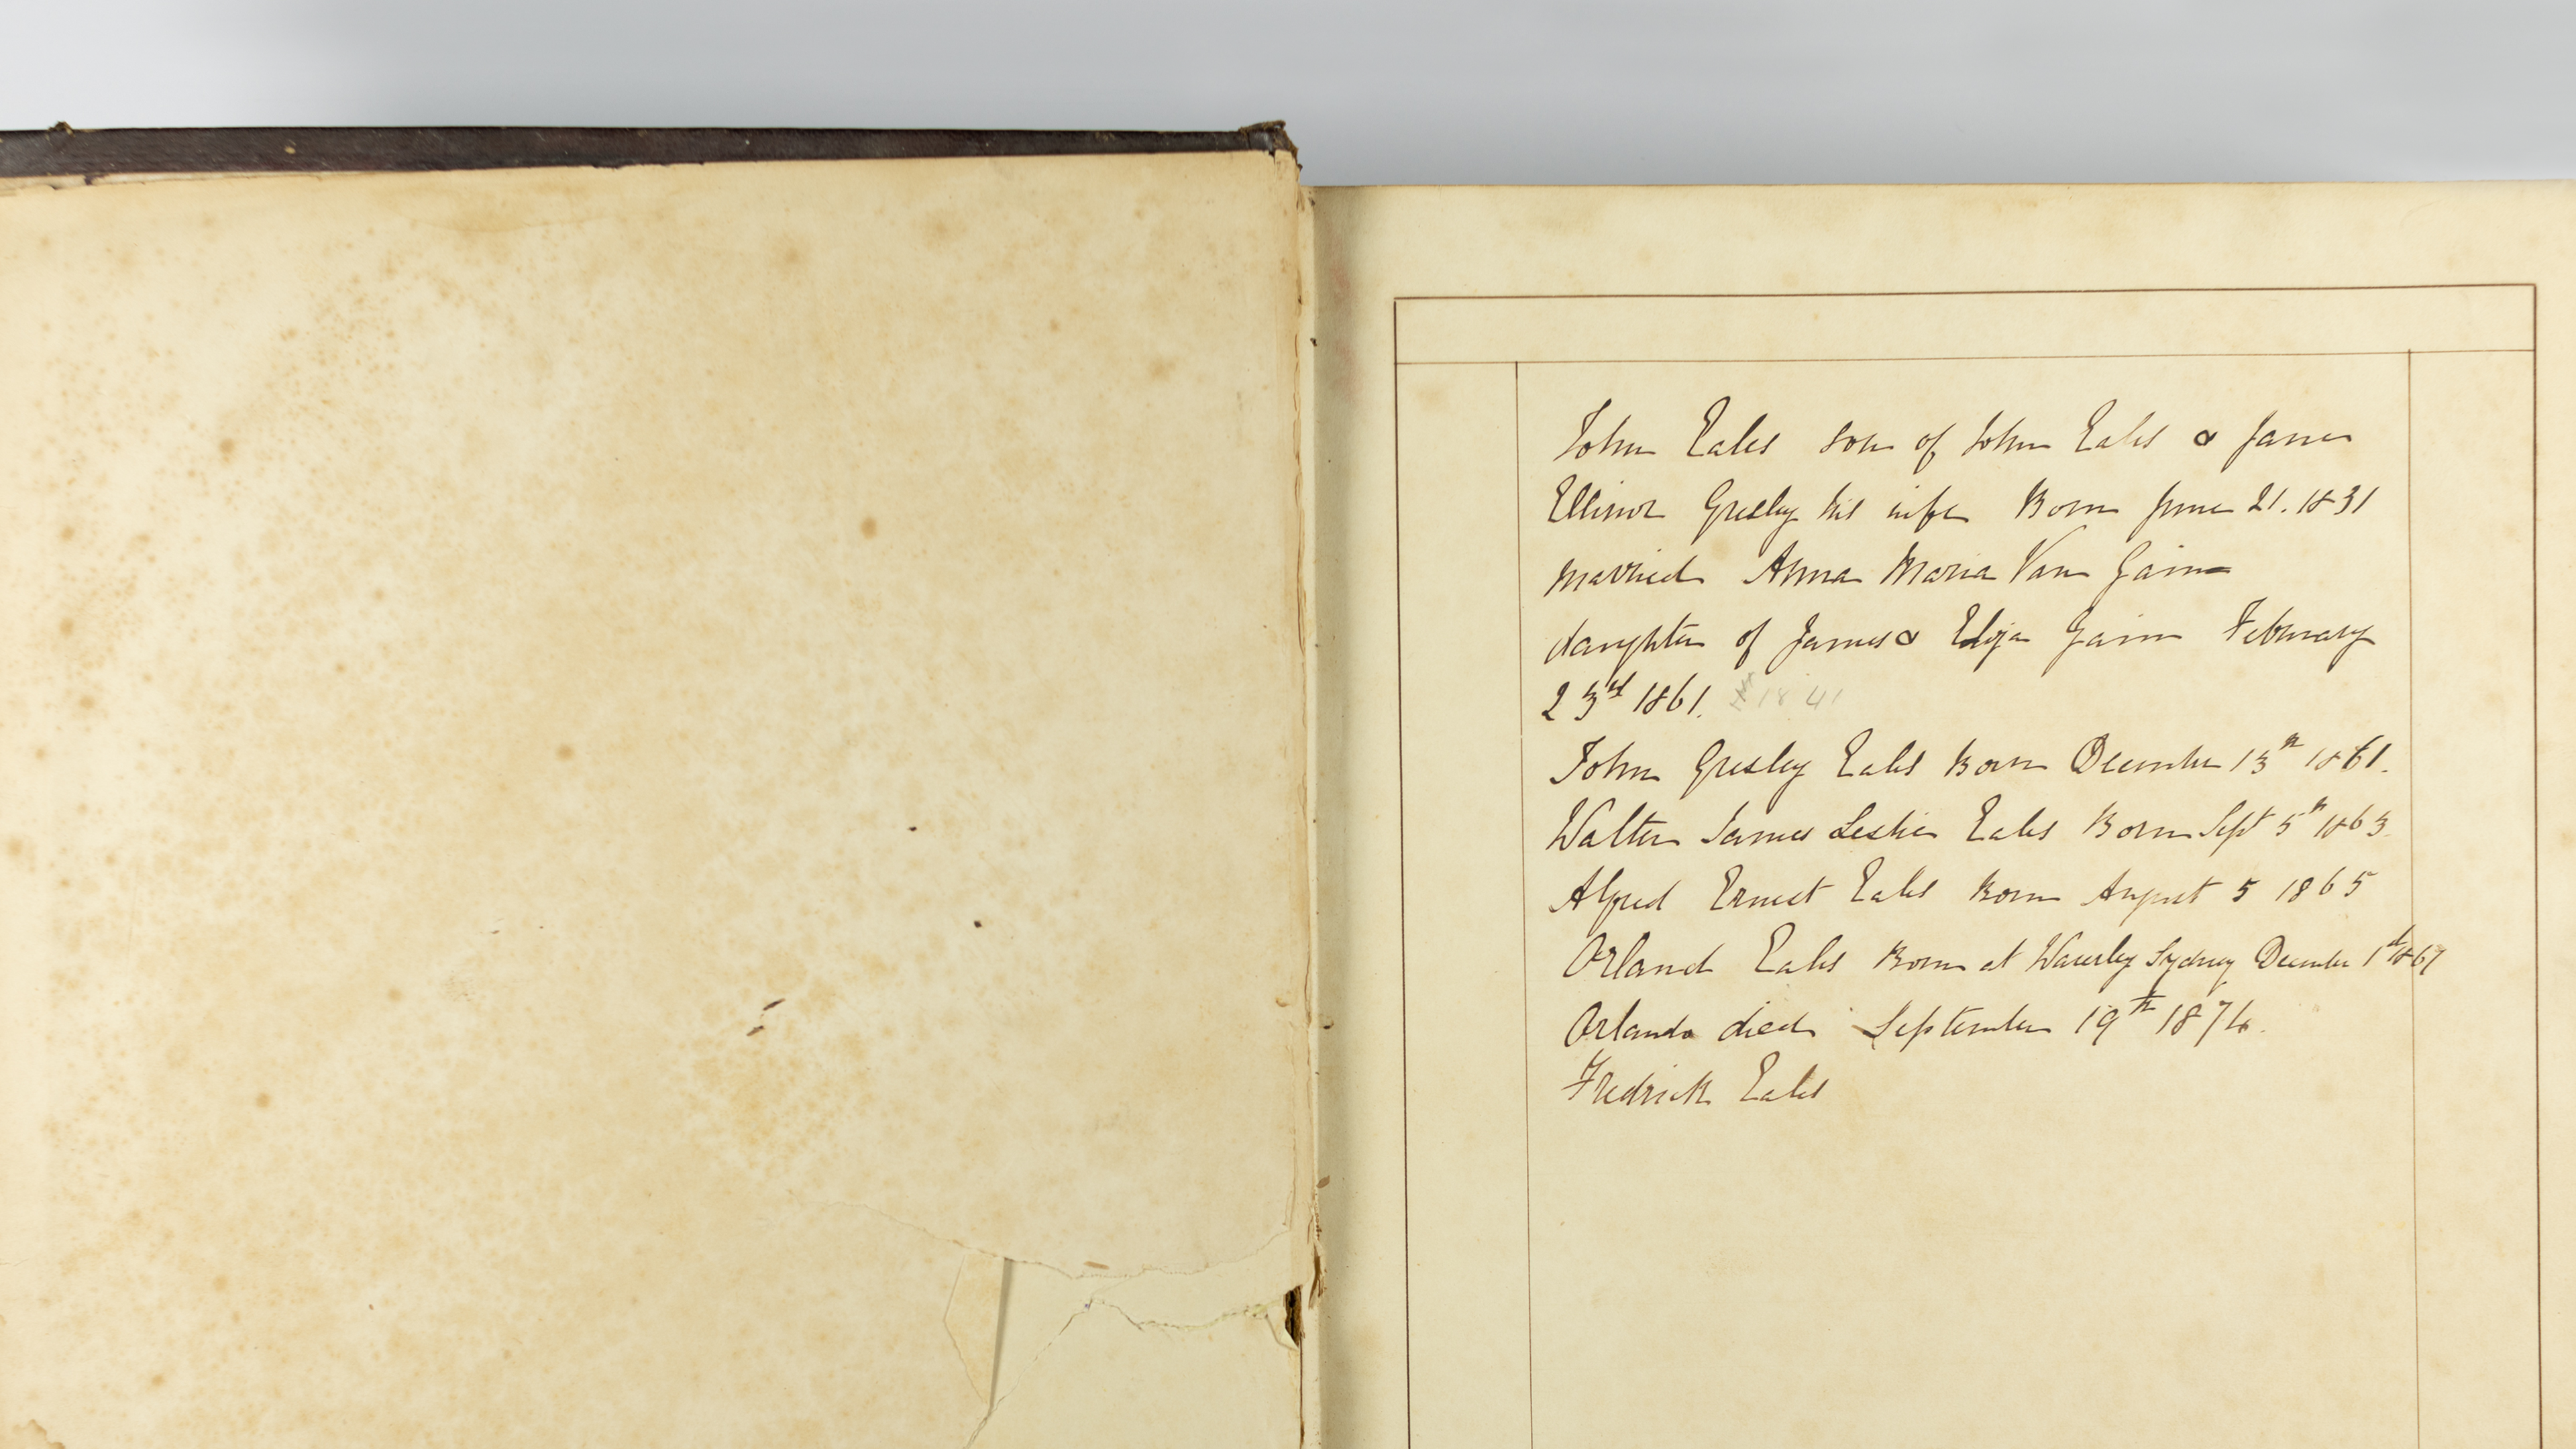 John Eales son of John Eales & Jane
Ellinor Gresley his wife Born June 21. 1831
married Anna Maria Van Gainn
daughter of James & Eliza Gainn February
23rd 1861. 1841
John Gresley Eales Born December 13th 1861.
Walter James Leslie Eales Born Sept 5th 1863.
Alfred Ernest Eales Born August 5 1865
Orland Eales Born at Waverley Sydney December 1st 1867
Orlando died September 19th 1876.
Fredrick Eales